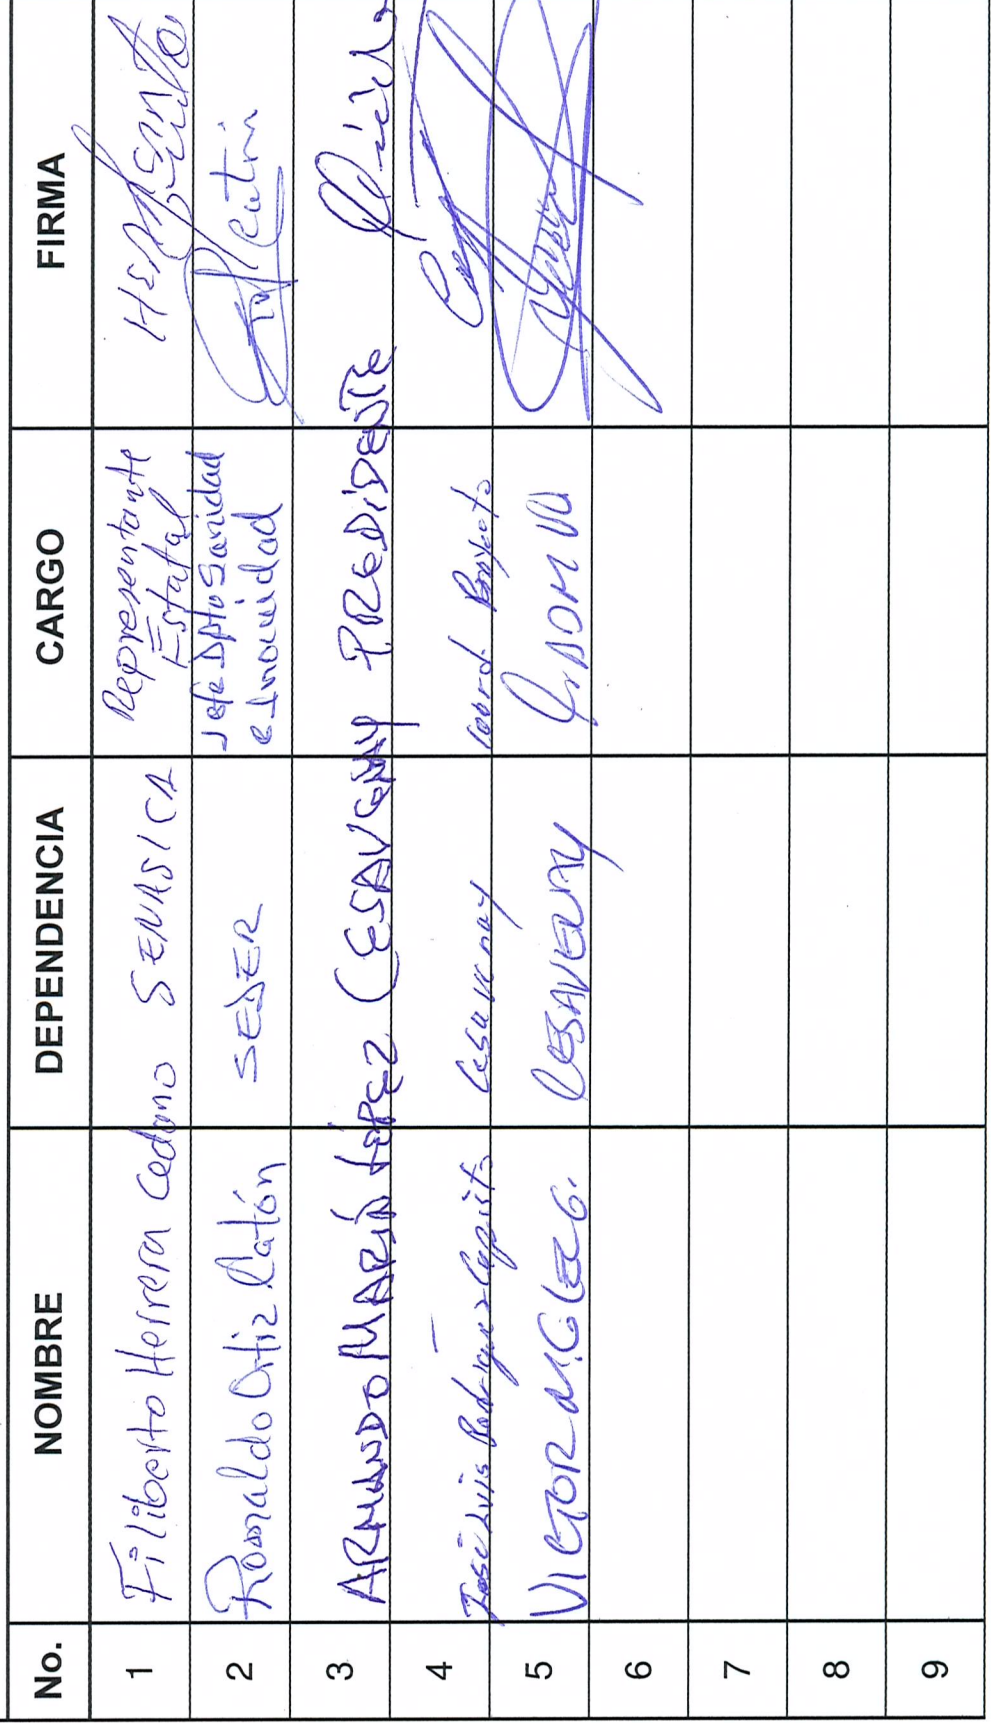 No. NOMBRE DEPENDENCIA CARGO FIRMA
1 Filiberto Herrera Cedano SENASICA Representante
Estatal
2 Romaldo Ortiz Catón SEDER Jefe Dpto Sanidad
e Inocuidad
3 ARMANDO MARÍN LÓPEZ CESAVENAY PRESIDENTE
4 José Luis Rodríguez Cesavenay Coord. Proyecto
5 VICTOR M. G. CESAVENAY
6
7
8
9